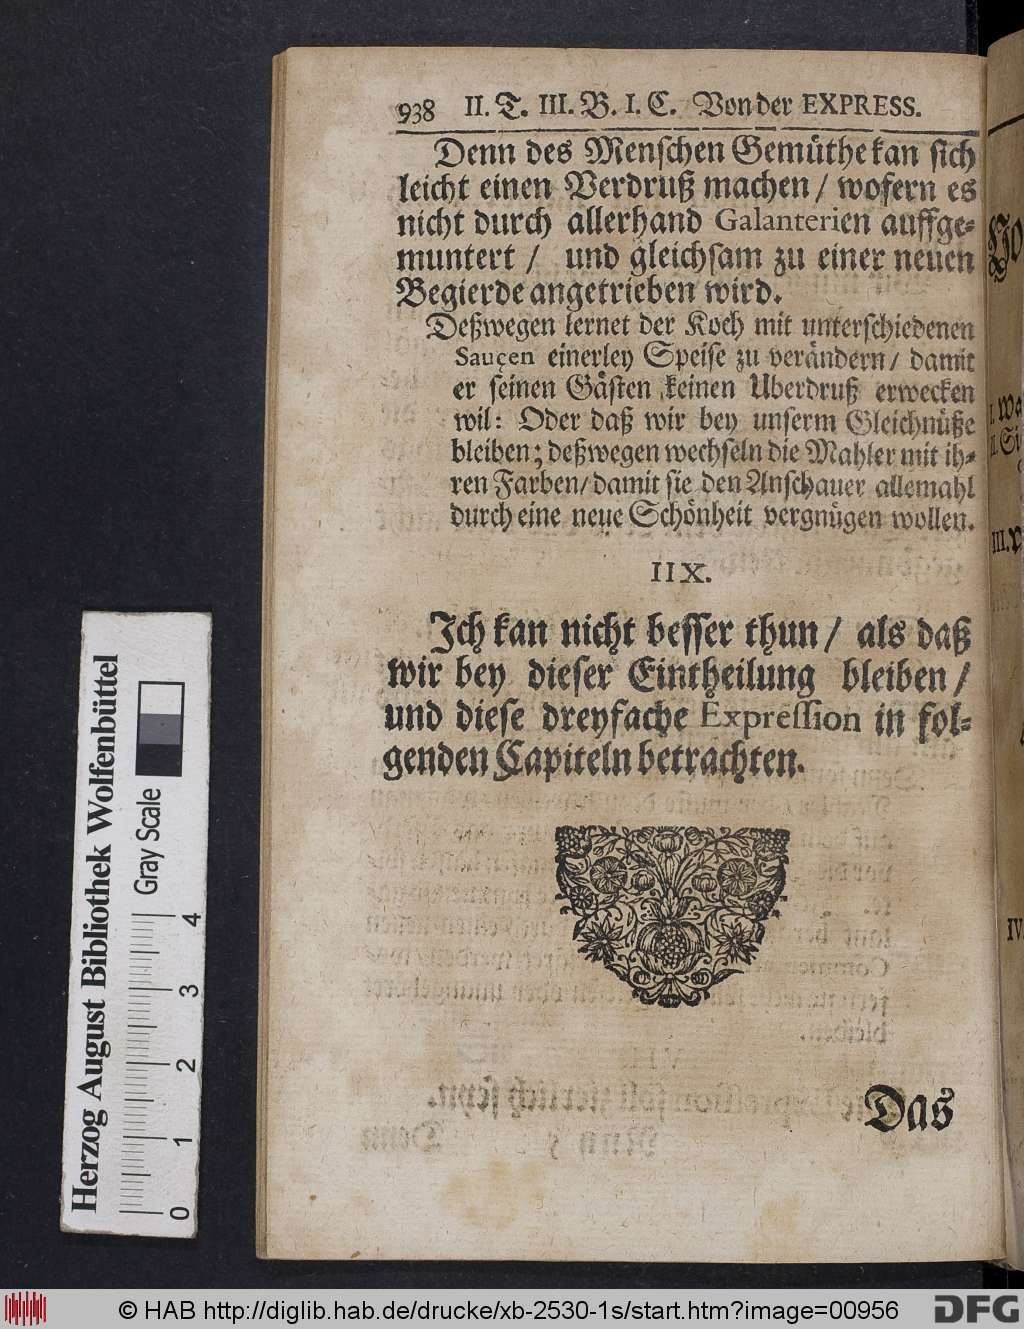 938 II. T. III. B. I. C. Von der EXPRESS.
Denn des Menschen Gemüthe kan sich
leicht einen Verdruß machen / wofern es
nicht durch allerhand Galanterien auffge-
muntert / und gleichsam zu einer neuen
Begierde angetrieben wird.
Deßwegen lernet der Koch mit unterschiedenen
Sauçen einerley Speise zu verändern / damit
er seinen Gästen keinen Uberdruß erwecken
wil: Oder daß wir bey unserm Gleichnüße
bleiben; deßwegen wechseln die Mahler mit ih-
ren Farben / damit sie den Anschauer allemahl
durch eine neue Schönheit vergnügen wollen.
IIX.
Ich kan nicht besser thun / als daß
wir bey dieser Eintheilung bleiben /
und diese dreyfache Expression in fol-
genden Capiteln betrachten.
Das
Herzog August Bibliothek Wolfenbüttel
Gray Scale
0 1 2 3 4
I. Wa
II. Si
III.
IV.
© HAB http://diglib.hab.de/drucke/xb-2530-1s/start.htm?image=00956
DFG